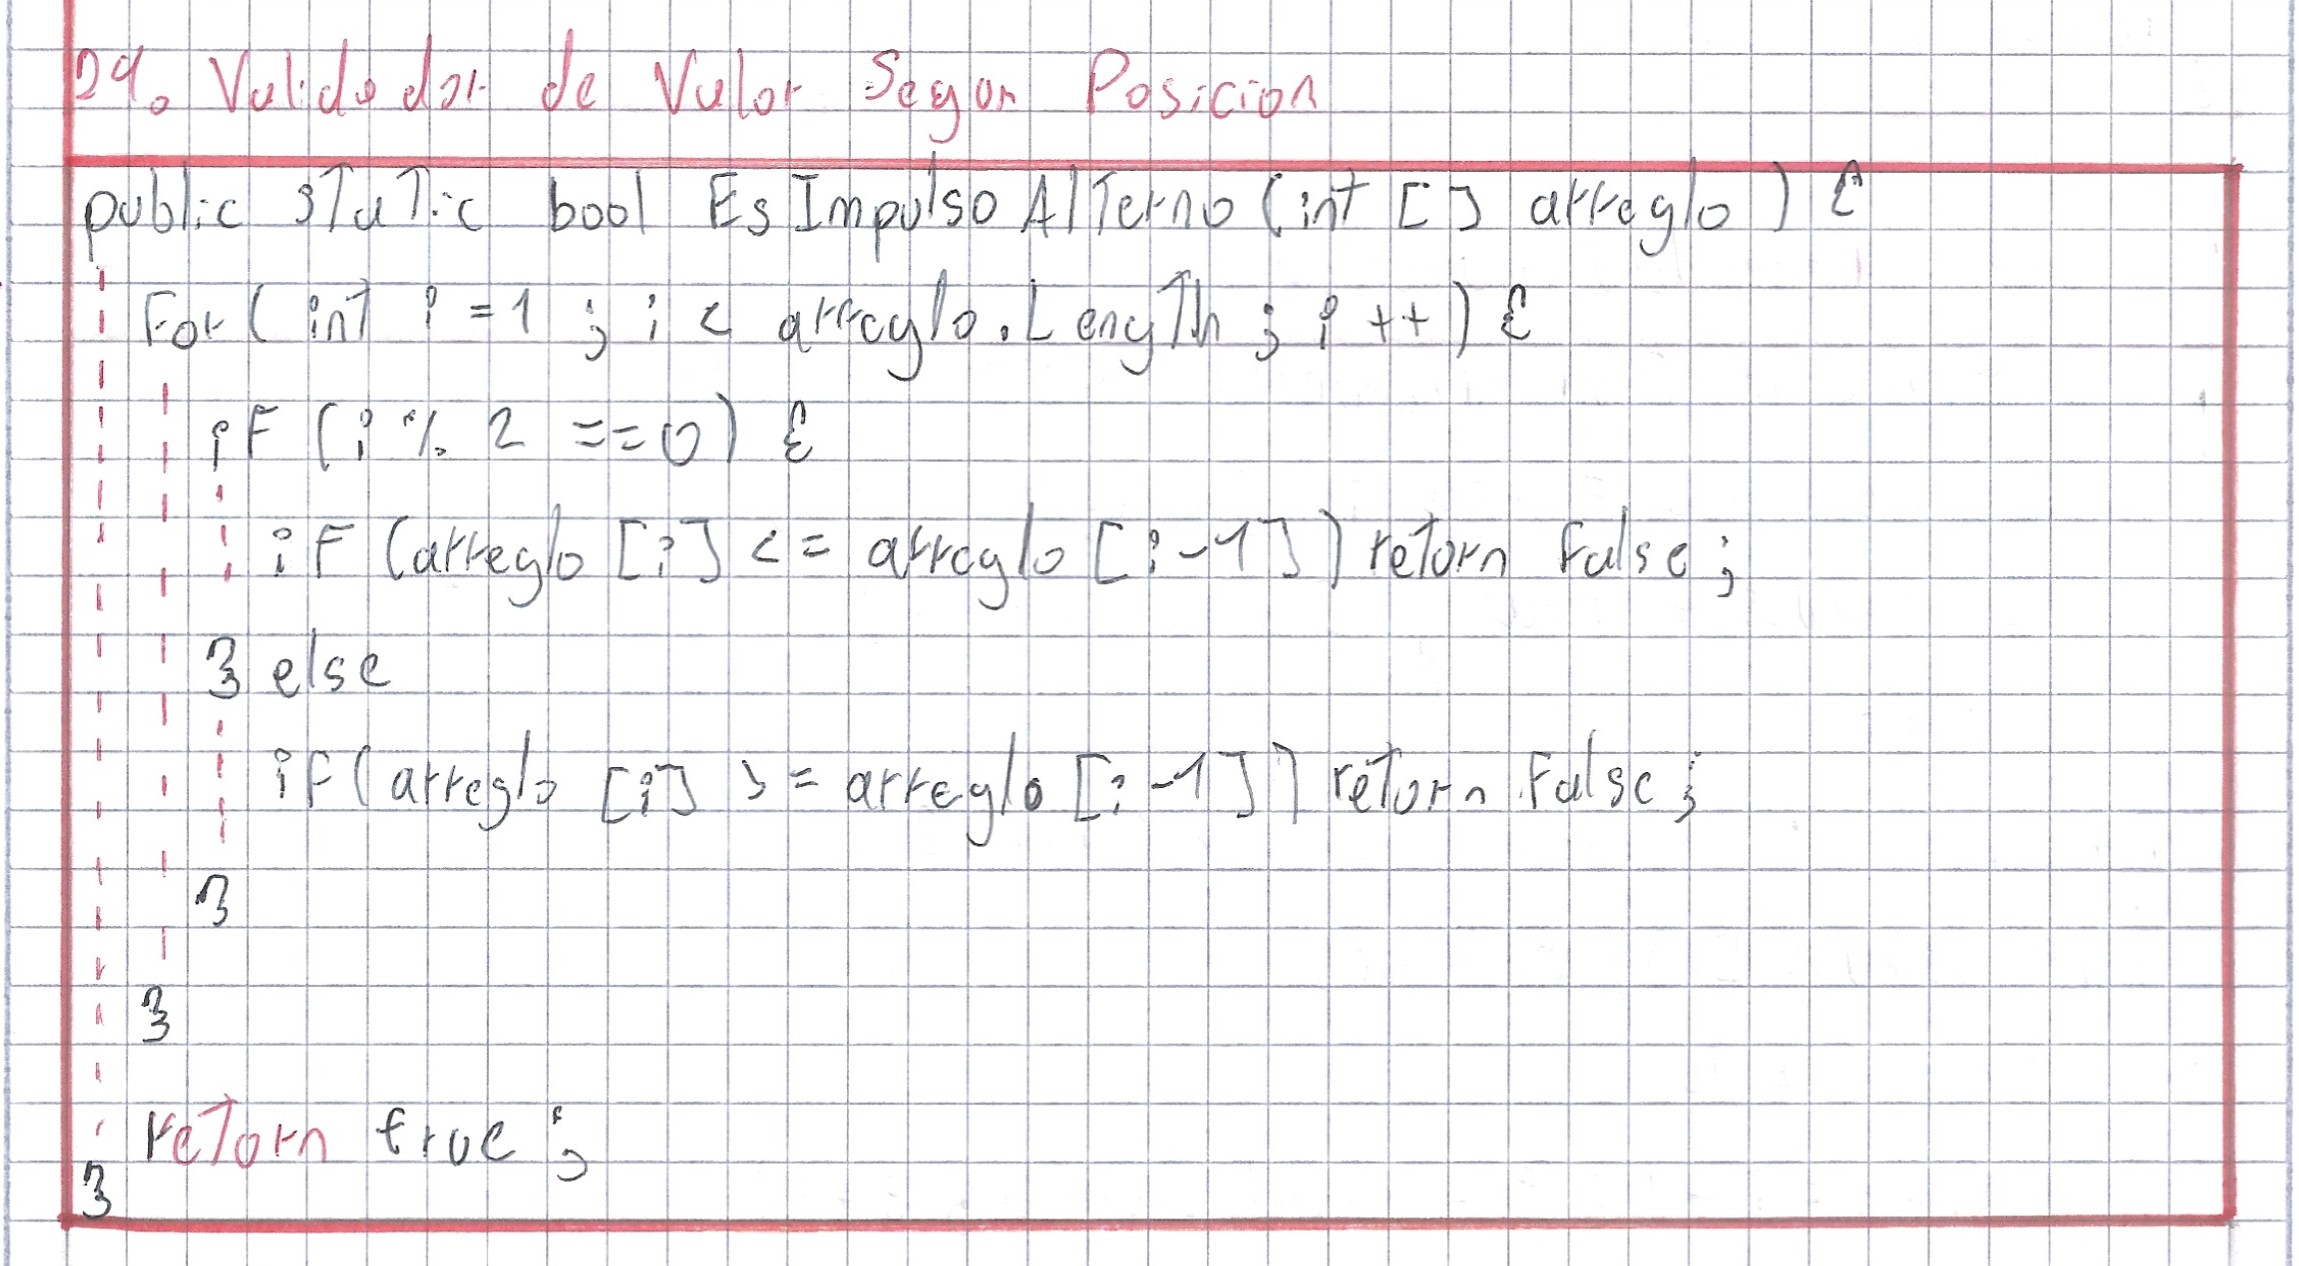 29. Validador de Valor Segun Posicion
public static bool EsImpulsoAlterno (int [] arreglo) {
For ( int i = 1 ; i < arreglo.Length ; i ++) {
iF (i % 2 == 0) {
iF (arreglo [i] <= arreglo [i-1]) return False ;
} else
if (arreglo [i] >= arreglo [i-1]) return False ;
}
}
return true ;
}